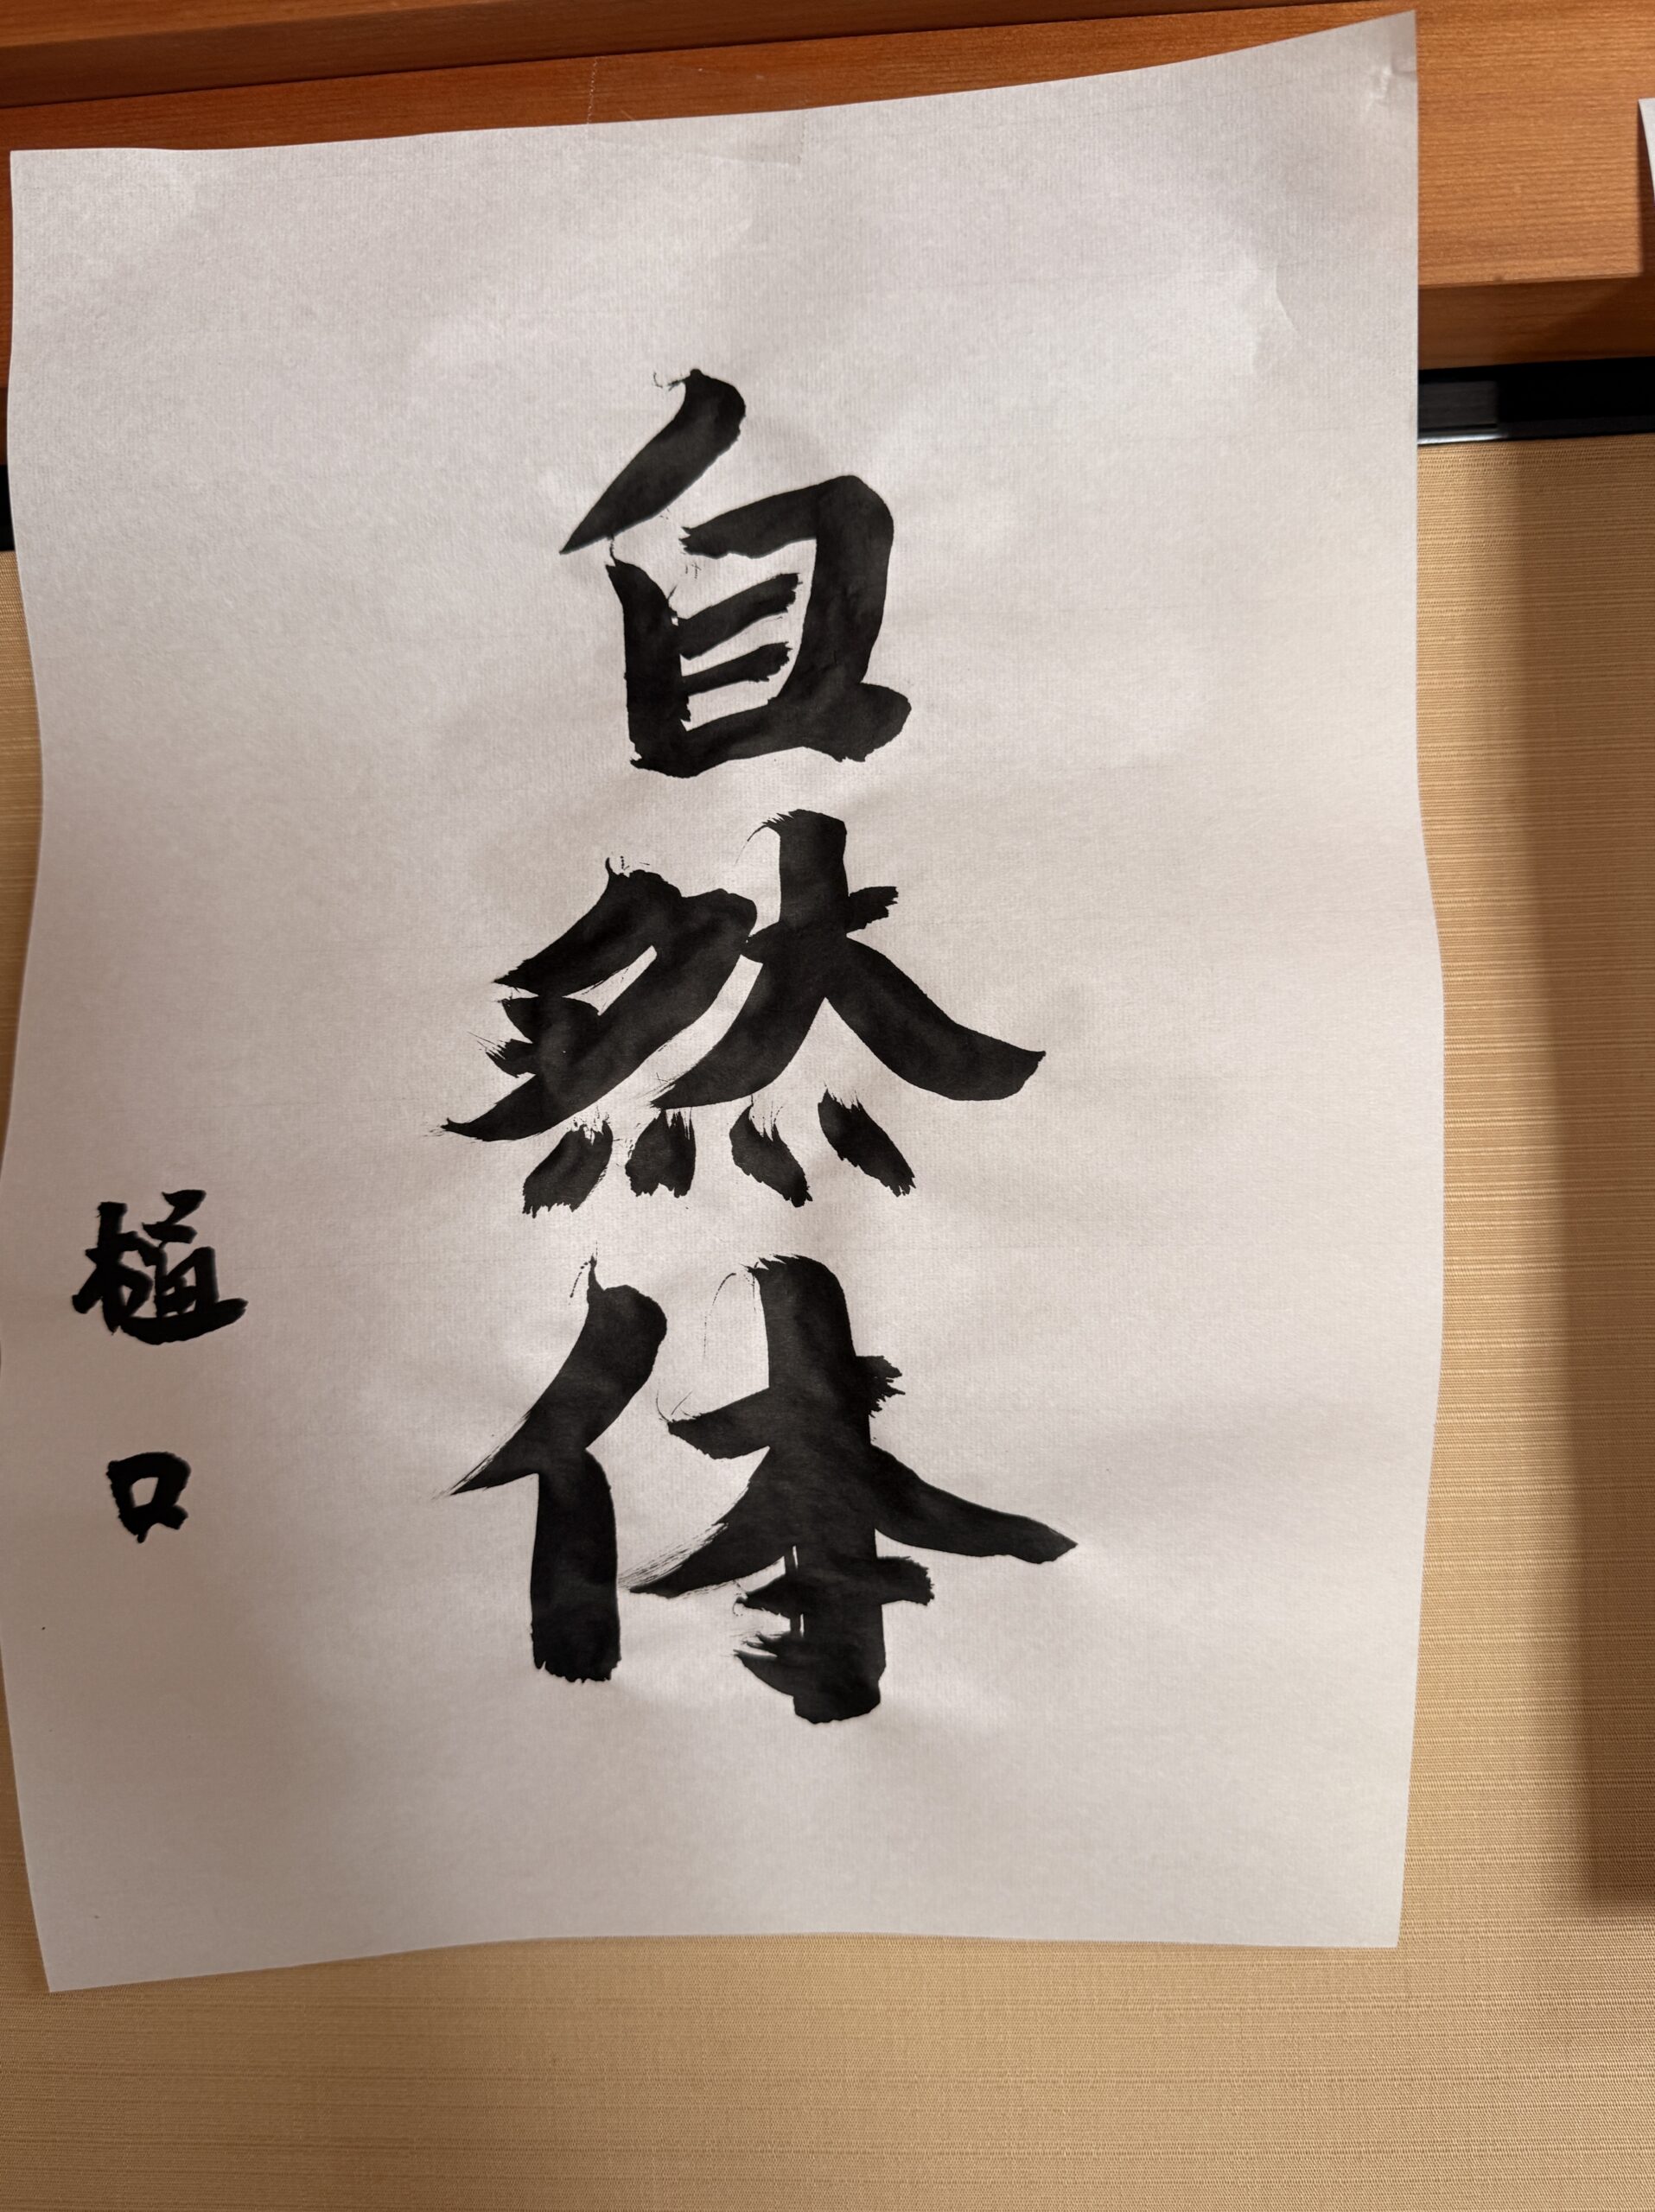 自然体
樋口